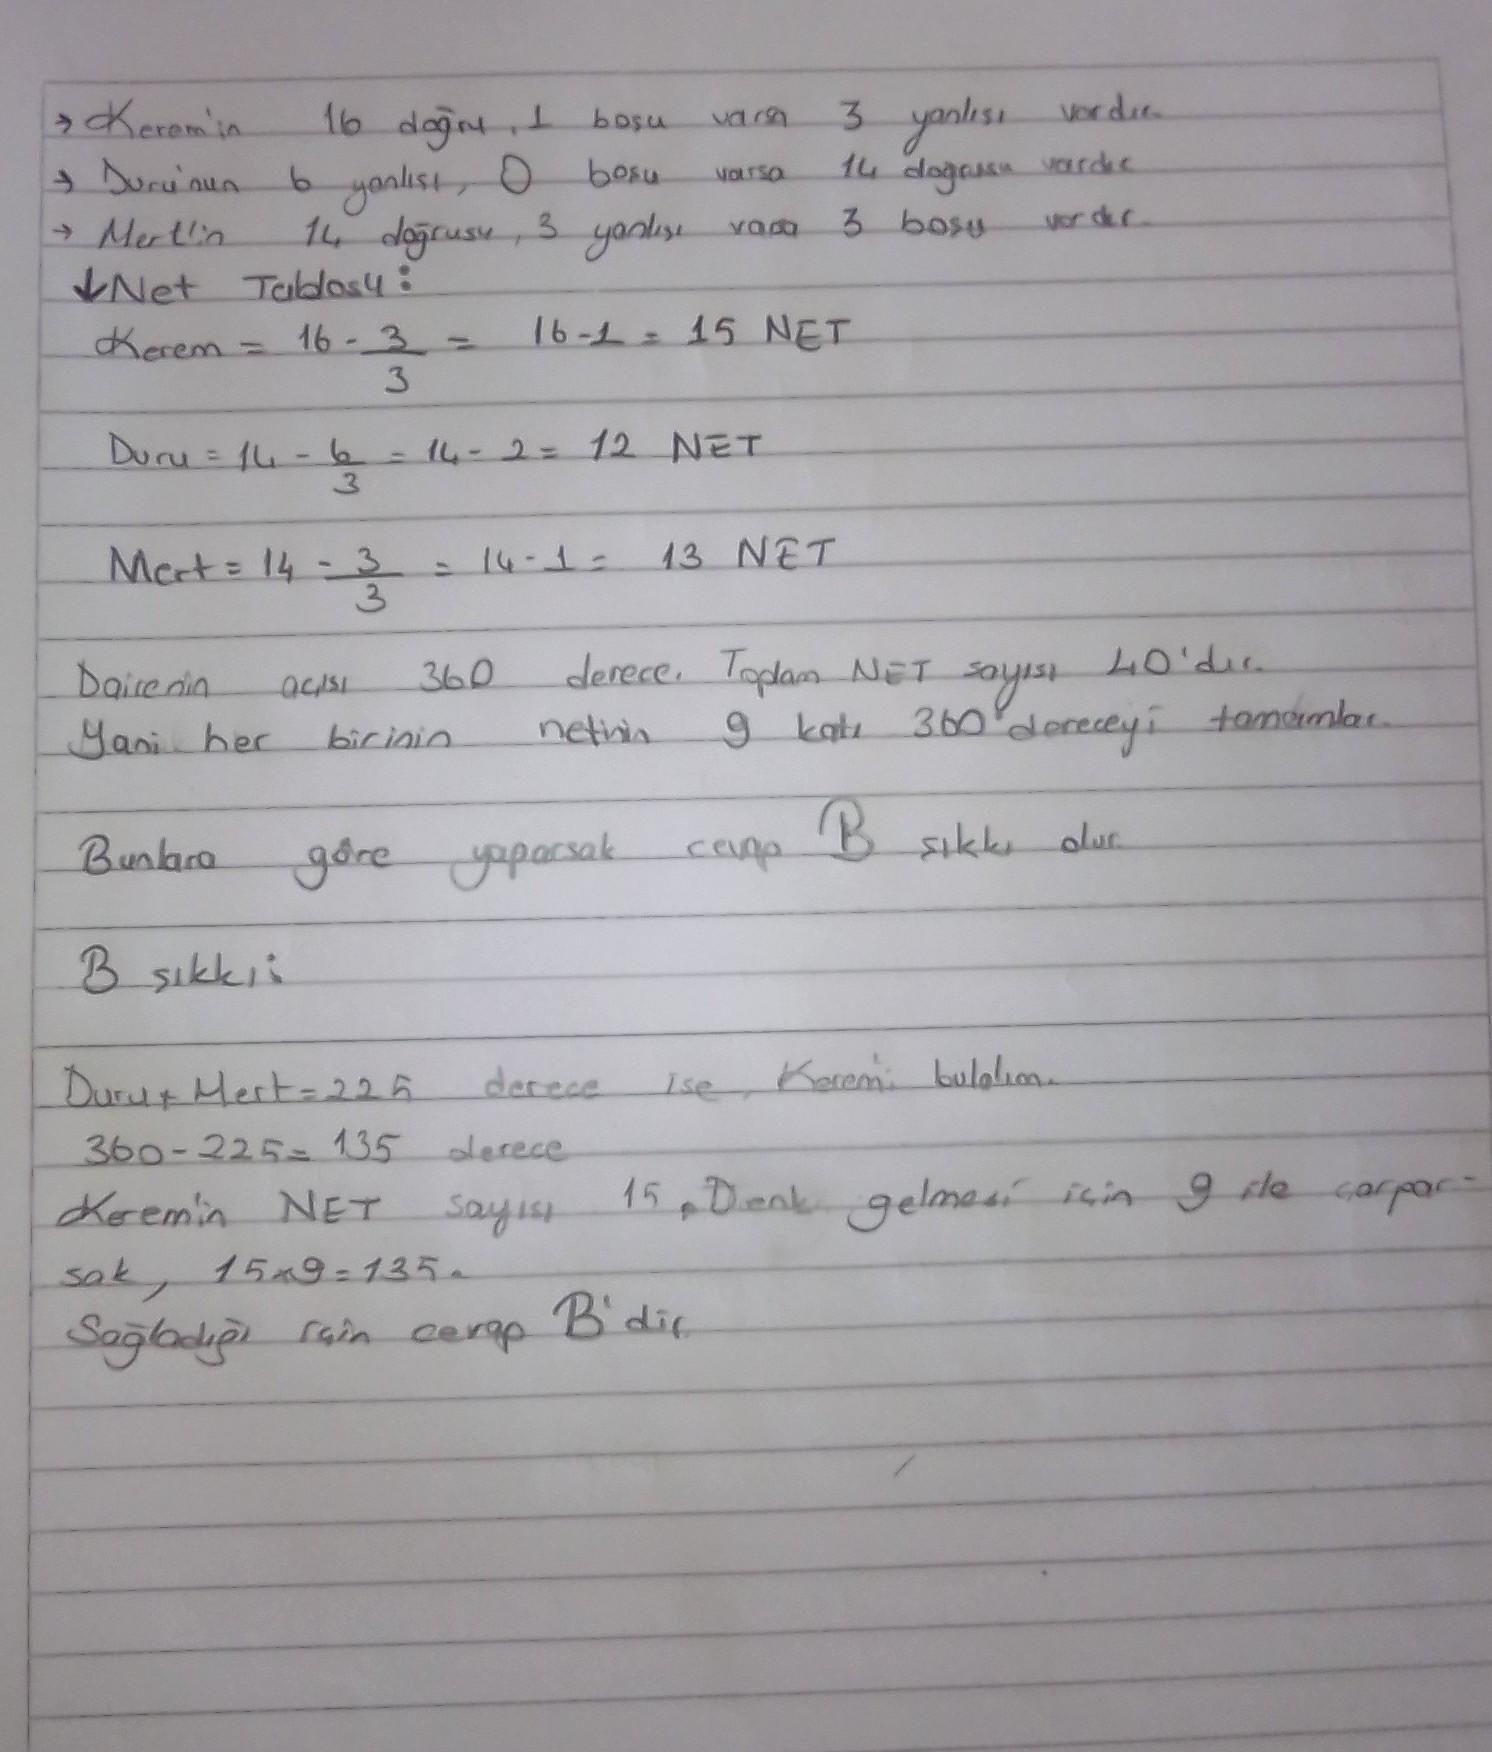 → Kerem'in 16 doğru, 1 boşu varsa 3 yanlışı vardır.
→ Duru'nun 6 yanlışı, 0 boşu varsa 14 doğrusu vardır
→ Mert'in 14 doğrusu, 3 yanlışı varsa 3 boşu vardır.
↓ Net Tablosu:
Kerem = 16 - 3/3 = 16-1 = 15 NET
Duru = 14 - 6/3 = 14 - 2 = 12 NET
Mert = 14 - 3/3 = 14-1 = 13 NET
Dairenin açısı 360 derece. Toplam NET sayısı 40'dır.
Yani her birinin netinin 9 katı 360 dereceyi tamamlar.
Bunlara göre yaparsak cevap B şıkkı olur.
B şıkkı:
Duru + Mert = 225 derece ise, Kerem'i bulalım.
360 - 225 = 135 derece
Kerem'in NET sayısı 15. Denk gelmesi için 9 ile çarpar-
sak, 15x9 = 135.
Sağladığı için cevap B'dir